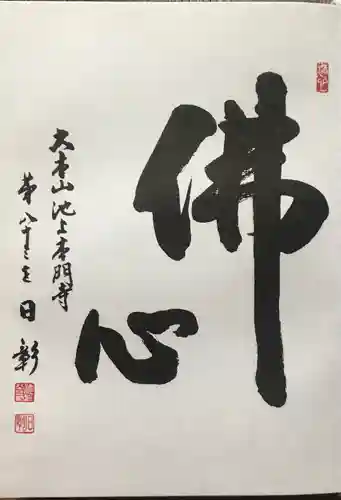 佛心
大本山池上本門寺
第八十三世
日彰